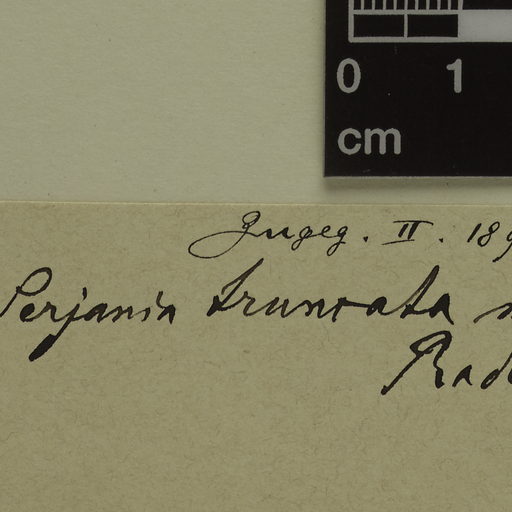 0 1
cm
Zugeg. II. 189
Serjania truncata n
Radl